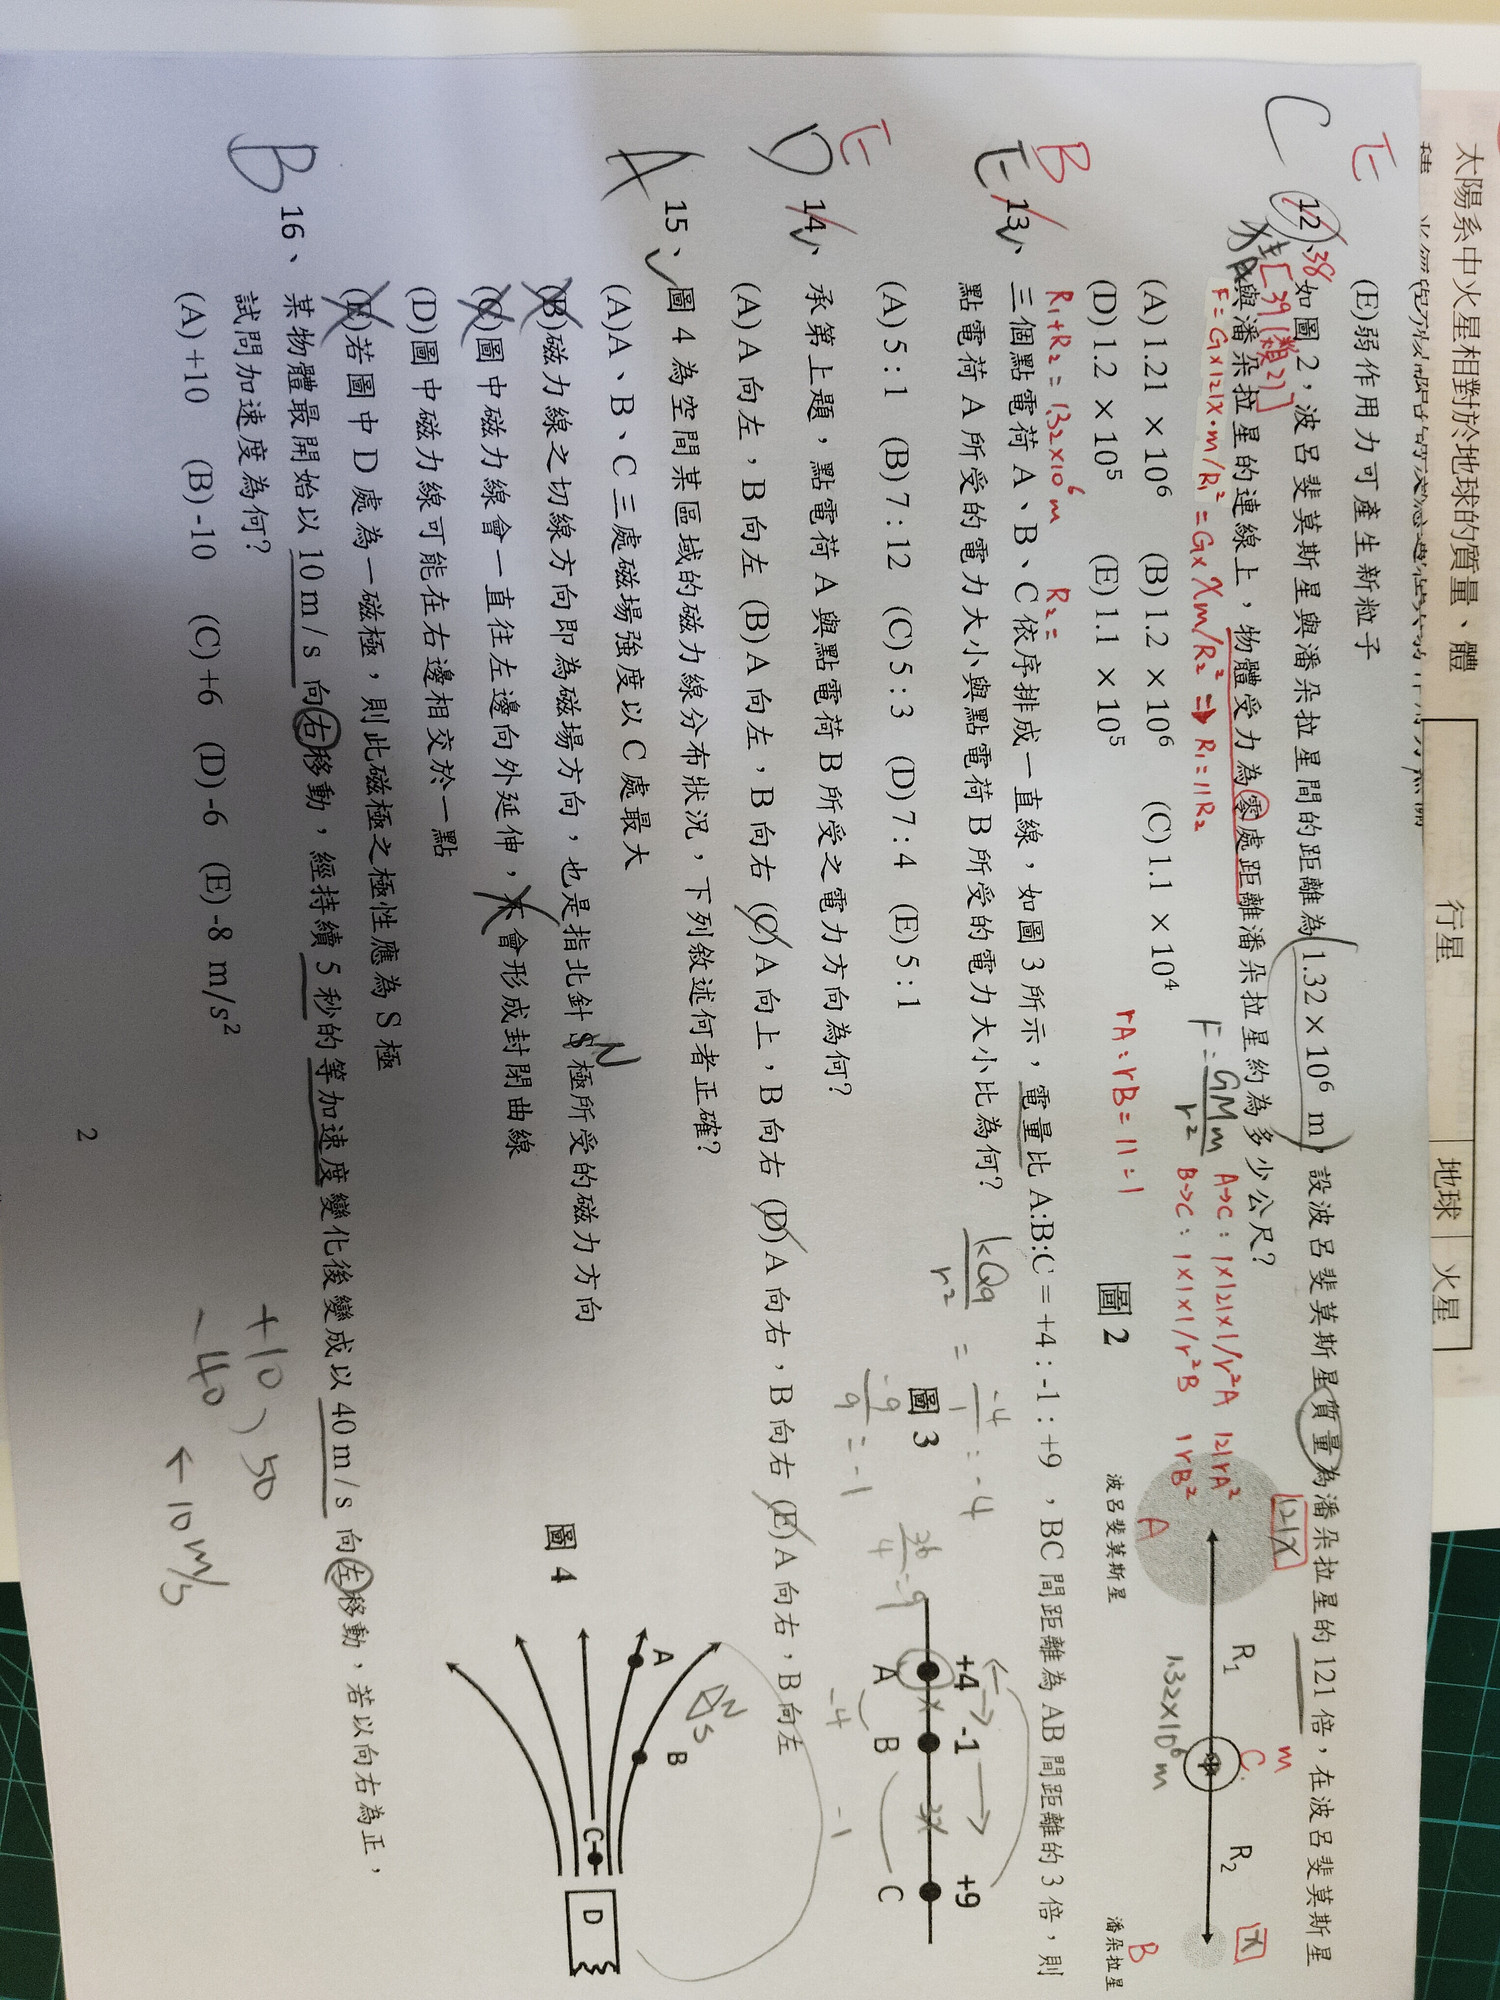 太陽系中火星相對於地球的質量、體
行星
地球
火星
(E)弱作用力可產生新粒子
E
C
12、如圖 2，波呂斐莫斯星與潘朵拉星間的距離為 1.32 × 10⁶ m，設波呂斐莫斯星質量為潘朵拉星的 121 倍，在波呂斐莫斯星
38
與潘朵拉星的連線上，物體受力為零處距離潘朵拉星約為多少公尺?
[39(類2)]
F = G×121x·m/R₁² = G×xm/R₂² → R₁=11R₂
(A) 1.21 × 10⁶ (B) 1.2 × 10⁶ (C) 1.1 × 10⁴
(D) 1.2 × 10⁵ (E) 1.1 × 10⁵
R₁+R₂ = 1.32×10⁶ m R₂=
F = GMm/r²
A→C: 1×121×1/r²A 121rA²
B→C: 1×1×1/r²B 1rB²
rA:rB=11:1
圖 2
121x
A
波呂斐莫斯星
R₁
1.32×10⁶ m
C
m
R₂
x
B
潘朵拉星
B
E
13、三個點電荷 A、B、C 依序排成一直線，如圖 3 所示，電量比 A:B:C = +4 : -1 : +9 ，BC 間距離為 AB 間距離的 3 倍，則
點電荷 A 所受的電力大小與點電荷 B 所受的電力大小比為何?
(A) 5 : 1 (B) 7 : 12 (C) 5 : 3 (D) 7 : 4 (E) 5 : 1
kQq/r² = -4/1 = -4
-9/9 = -1
36/4 = 9
圖 3
+4 -1 +9
x 3x
A B C
-4 -1
E
D
14、承第上題，點電荷 A 與點電荷 B 所受之電力方向為何?
(A) A 向左，B 向左 (B) A 向左，B 向右 (C) A 向上，B 向右 (D) A 向右，B 向右 (E) A 向右，B 向左
A
15、圖 4 為空間某區域的磁力線分布狀況，下列敘述何者正確?
(A)A、B、C 三處磁場強度以 C 處最大
(B)磁力線之切線方向即為磁場方向，也是指北針 S 極所受的磁力方向
N
(C)圖中磁力線會一直往左邊向外延伸，不會形成封閉曲線
(D)圖中磁力線可能在右邊相交於一點
(E)若圖中 D 處為一磁極，則此磁極之極性應為 S 極
圖 4
N S
A
B
C
D
B
16、某物體最開始以 10 m / s 向右移動，經持續 5 秒的等加速度變化後變成以 40 m / s 向左移動，若以向右為正，
試問加速度為何?
(A) +10 (B) -10 (C) +6 (D) -6 (E) -8 m/s²
+10
-40
50
← 10 m/s
2